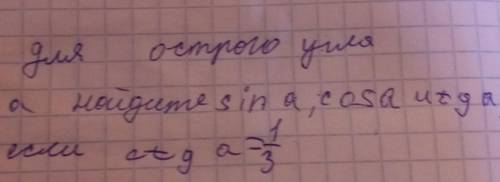 для острого угла
а найдите sin a, cos a и tg a
если ctg a = 1/3